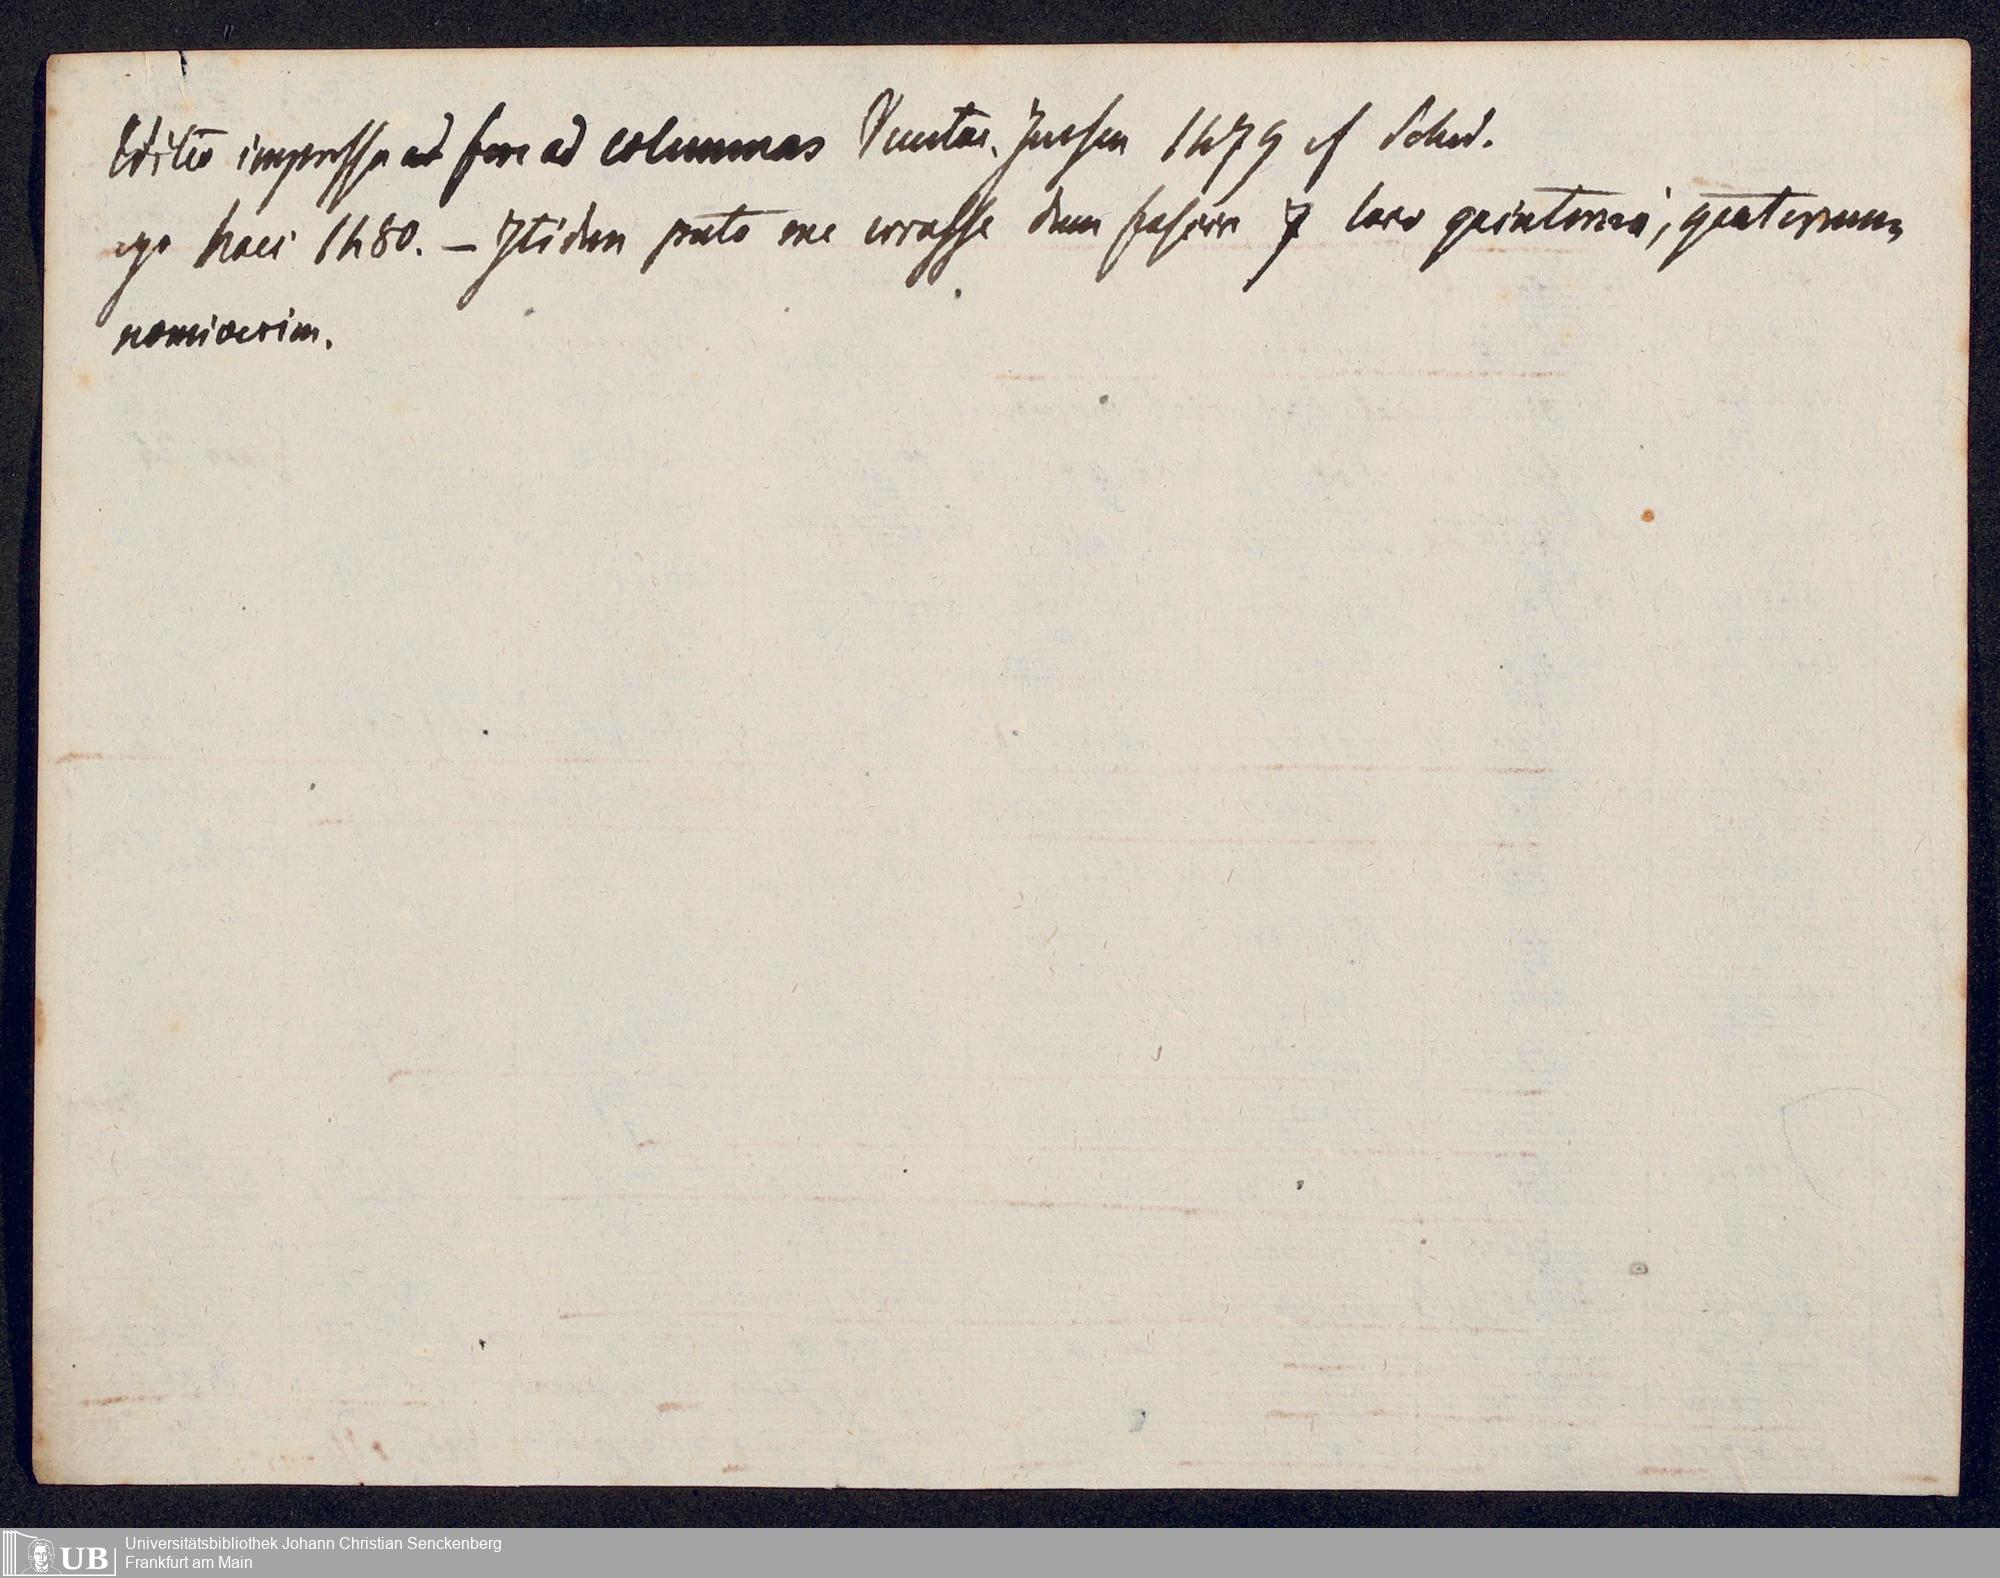 Editio impressa est fere ad columnas Juntae. Jensen 1479 cf
ego hací 1480. — Itidem puto me errasse dum loco quinterni, quaternum
nominaverim.
UB Universitätsbibliothek Johann Christian Senckenberg
Frankfurt am Main